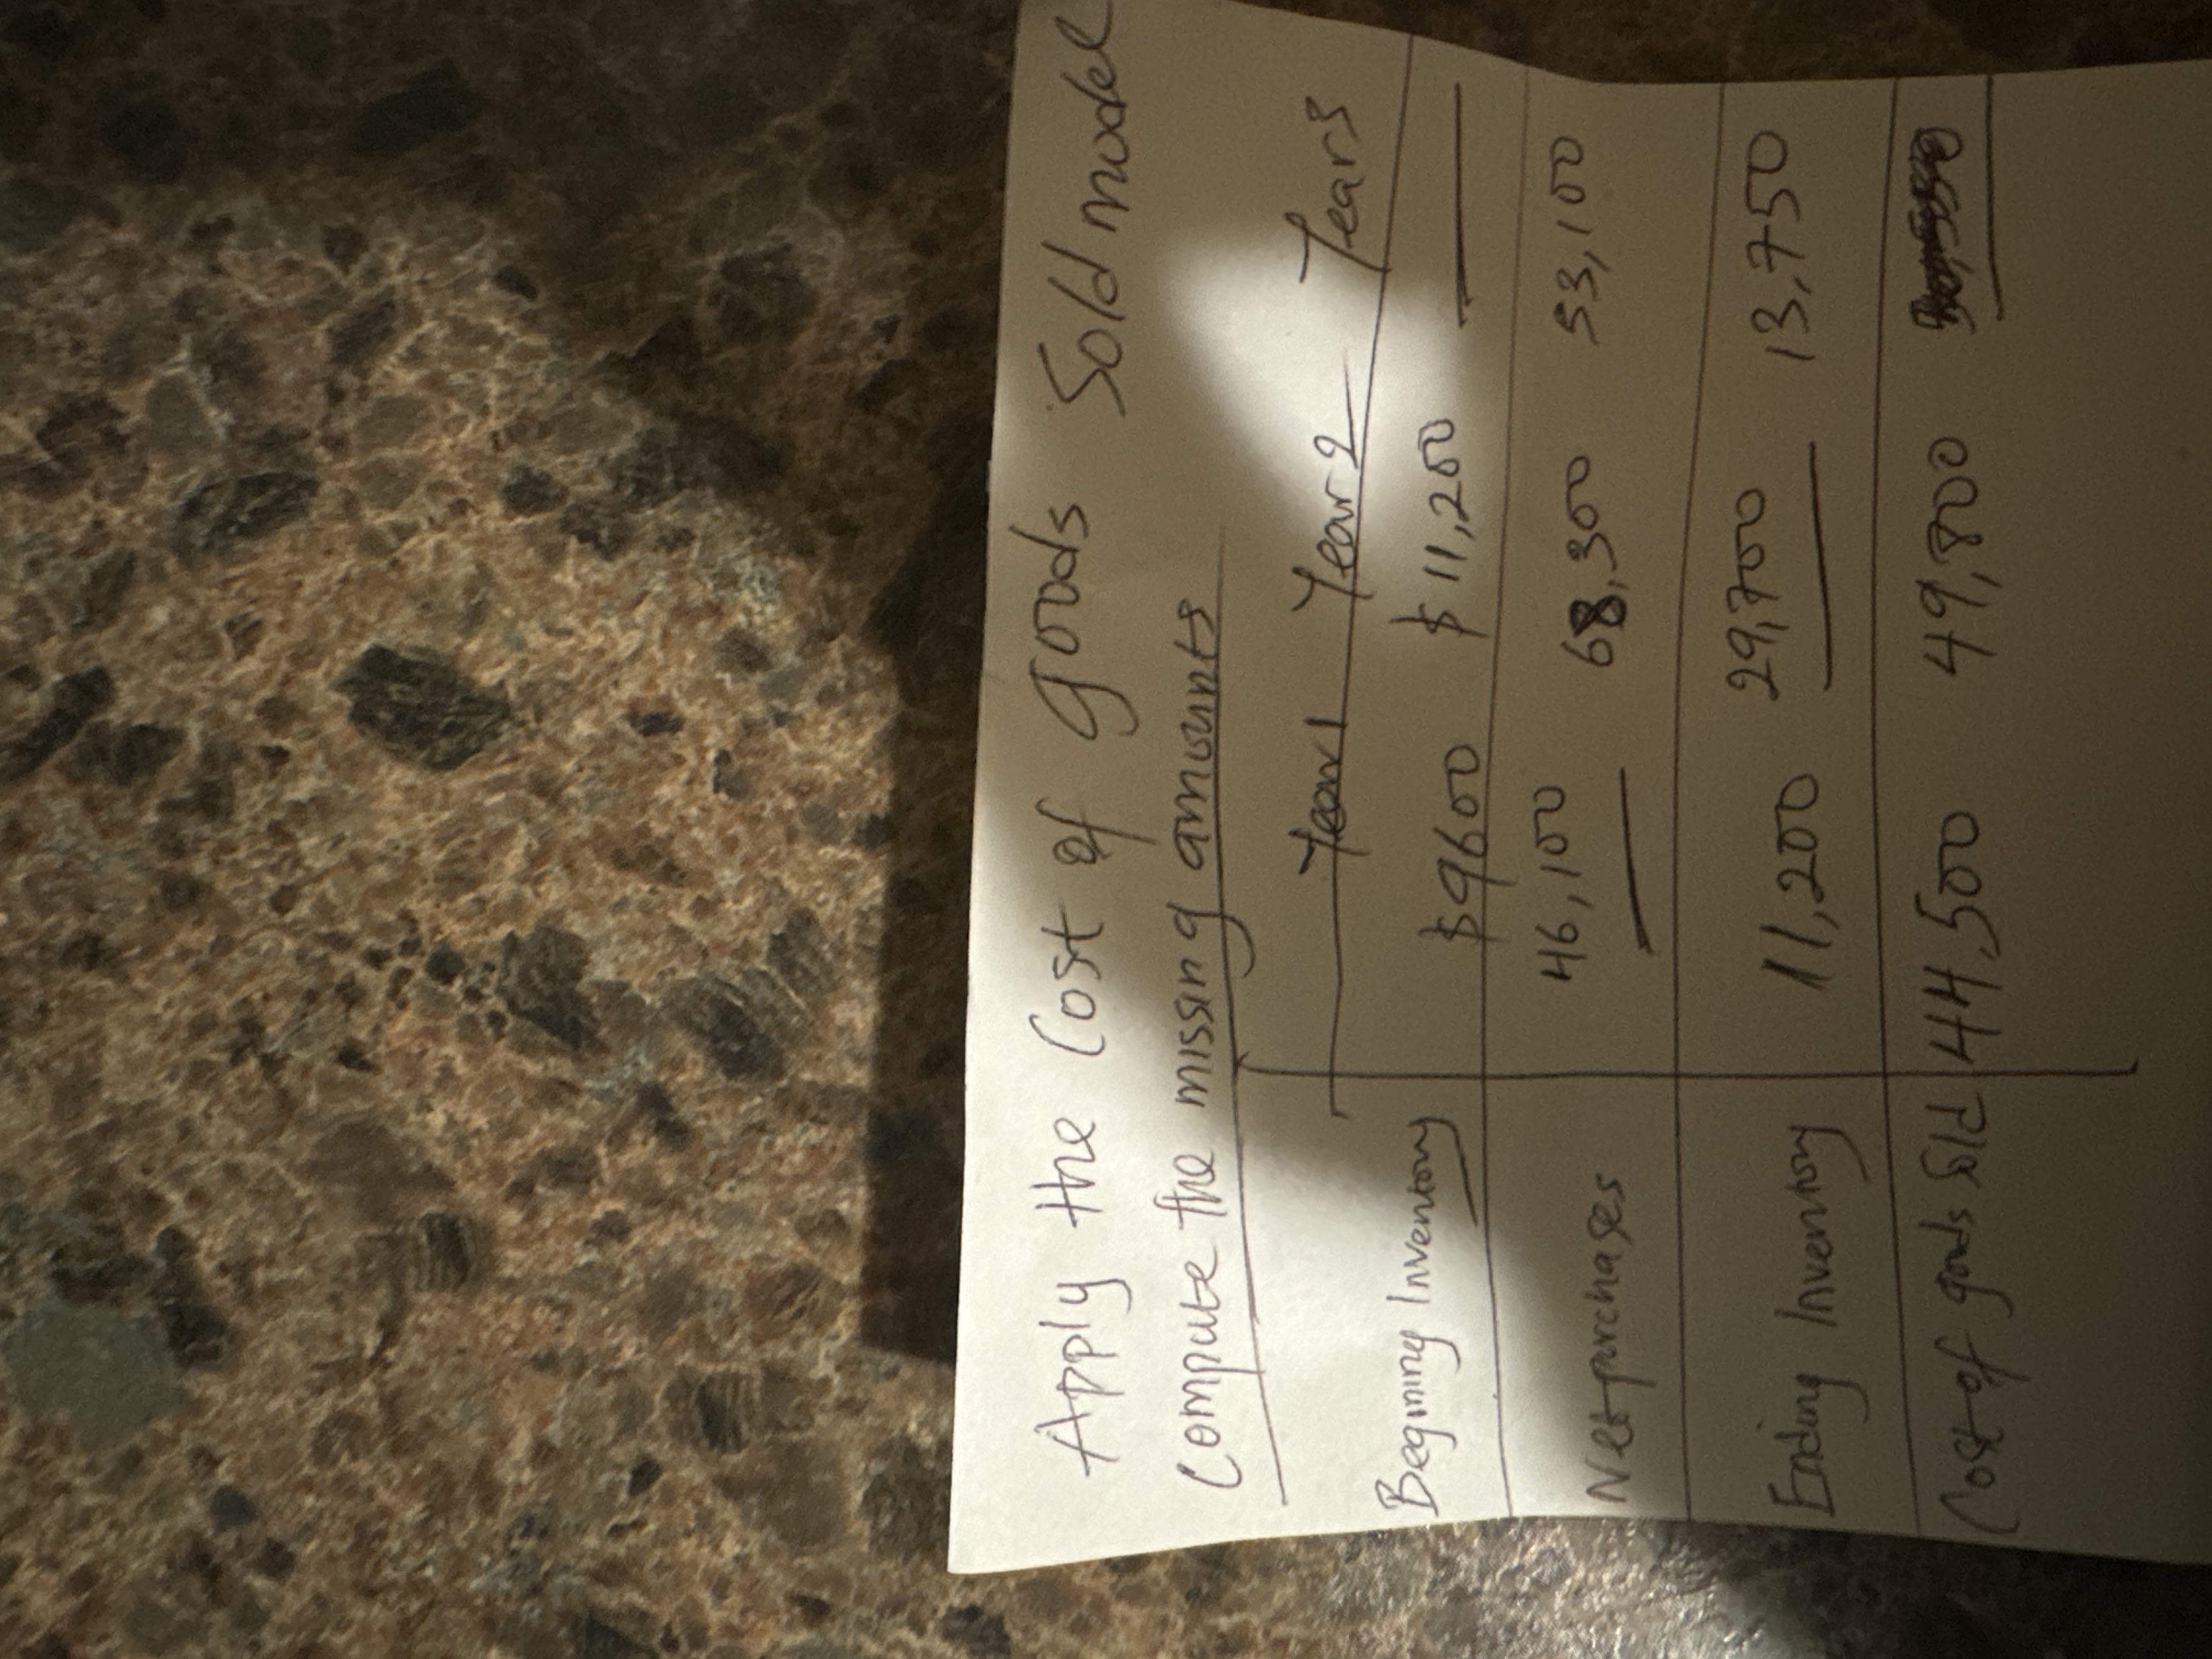 Apply the Cost of goods Sold model
Compute the missing amounts
Year1 Year2 Year3
Begining Inventory $9600 $11,200
Net purchases 46,100 68,300 53,100
Ending Inventory 11,200 29,700 13,750
Cost of goods Sold 44,500 49,800